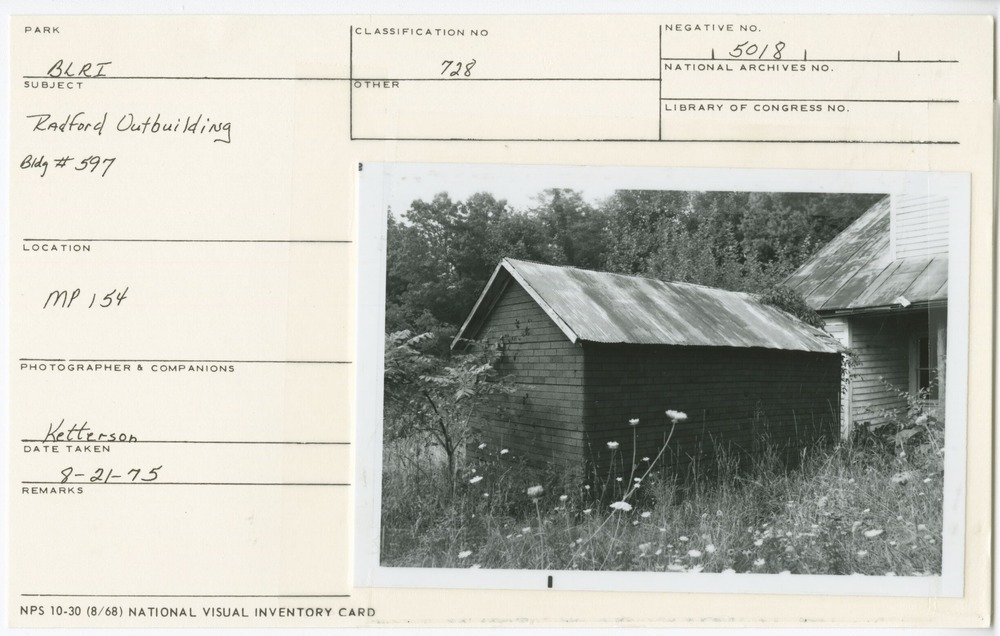 PARK
BLRI
SUBJECT
Radford Outbuilding
Bldg # 597
LOCATION
MP 154
PHOTOGRAPHER & COMPANIONS
Ketterson
DATE TAKEN
8-21-75
REMARKS
NPS 10-30 (8/68) NATIONAL VISUAL INVENTORY CARD
CLASSIFICATION NO
728
OTHER
NEGATIVE NO.
5018
NATIONAL ARCHIVES NO.
LIBRARY OF CONGRESS NO.